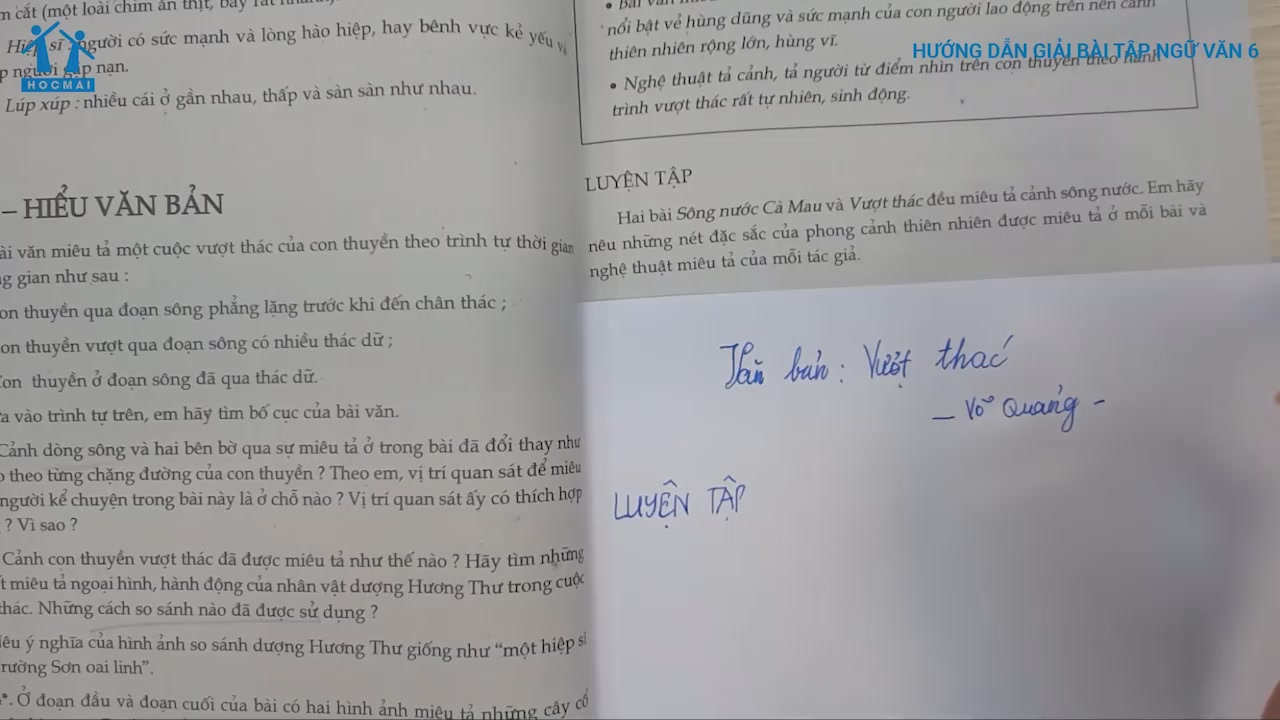 m cắt (một loài chim ăn thịt, bay rất nhanh).
Hiệp sĩ : người có sức mạnh và lòng hào hiệp, hay bênh vực kẻ yếu và
p người gặp nạn.
Lúp xúp : nhiều cái ở gần nhau, thấp và sàn sàn như nhau.
– HIỂU VĂN BẢN
ài văn miêu tả một cuộc vượt thác của con thuyền theo trình tự thời gian
g gian như sau :
on thuyền qua đoạn sông phẳng lặng trước khi đến chân thác ;
on thuyền vượt qua đoạn sông có nhiều thác dữ ;
Con thuyền ở đoạn sông đã qua thác dữ.
a vào trình tự trên, em hãy tìm bố cục của bài văn.
Cảnh dòng sông và hai bên bờ qua sự miêu tả ở trong bài đã đổi thay như
o theo từng chặng đường của con thuyền ? Theo em, vị trí quan sát để miêu
người kể chuyện trong bài này là ở chỗ nào ? Vị trí quan sát ấy có thích hợp
? Vì sao ?
Cảnh con thuyền vượt thác đã được miêu tả như thế nào ? Hãy tìm những
t miêu tả ngoại hình, hành động của nhân vật dượng Hương Thư trong cuộc
thác. Những cách so sánh nào đã được sử dụng ?
êu ý nghĩa của hình ảnh so sánh dượng Hương Thư giống như “một hiệp sĩ
rường Sơn oai linh”.
*. Ở đoạn đầu và đoạn cuối của bài có hai hình ảnh miêu tả những cây cổ
• Bài văn
nổi bật vẻ hùng dũng và sức mạnh của con người lao động trên nền cảnh
thiên nhiên rộng lớn, hùng vĩ.
• Nghệ thuật tả cảnh, tả người từ điểm nhìn trên con thuyền theo hành
trình vượt thác rất tự nhiên, sinh động.
LUYỆN TẬP
Hai bài Sông nước Cà Mau và Vượt thác đều miêu tả cảnh sông nước. Em hãy
nêu những nét đặc sắc của phong cảnh thiên nhiên được miêu tả ở mỗi bài và
nghệ thuật miêu tả của mỗi tác giả.
Văn bản : Vượt thác
– Võ Quảng –
LUYỆN TẬP
HƯỚNG DẪN GIẢI BÀI TẬP NGỮ VĂN 6
HOCMAI